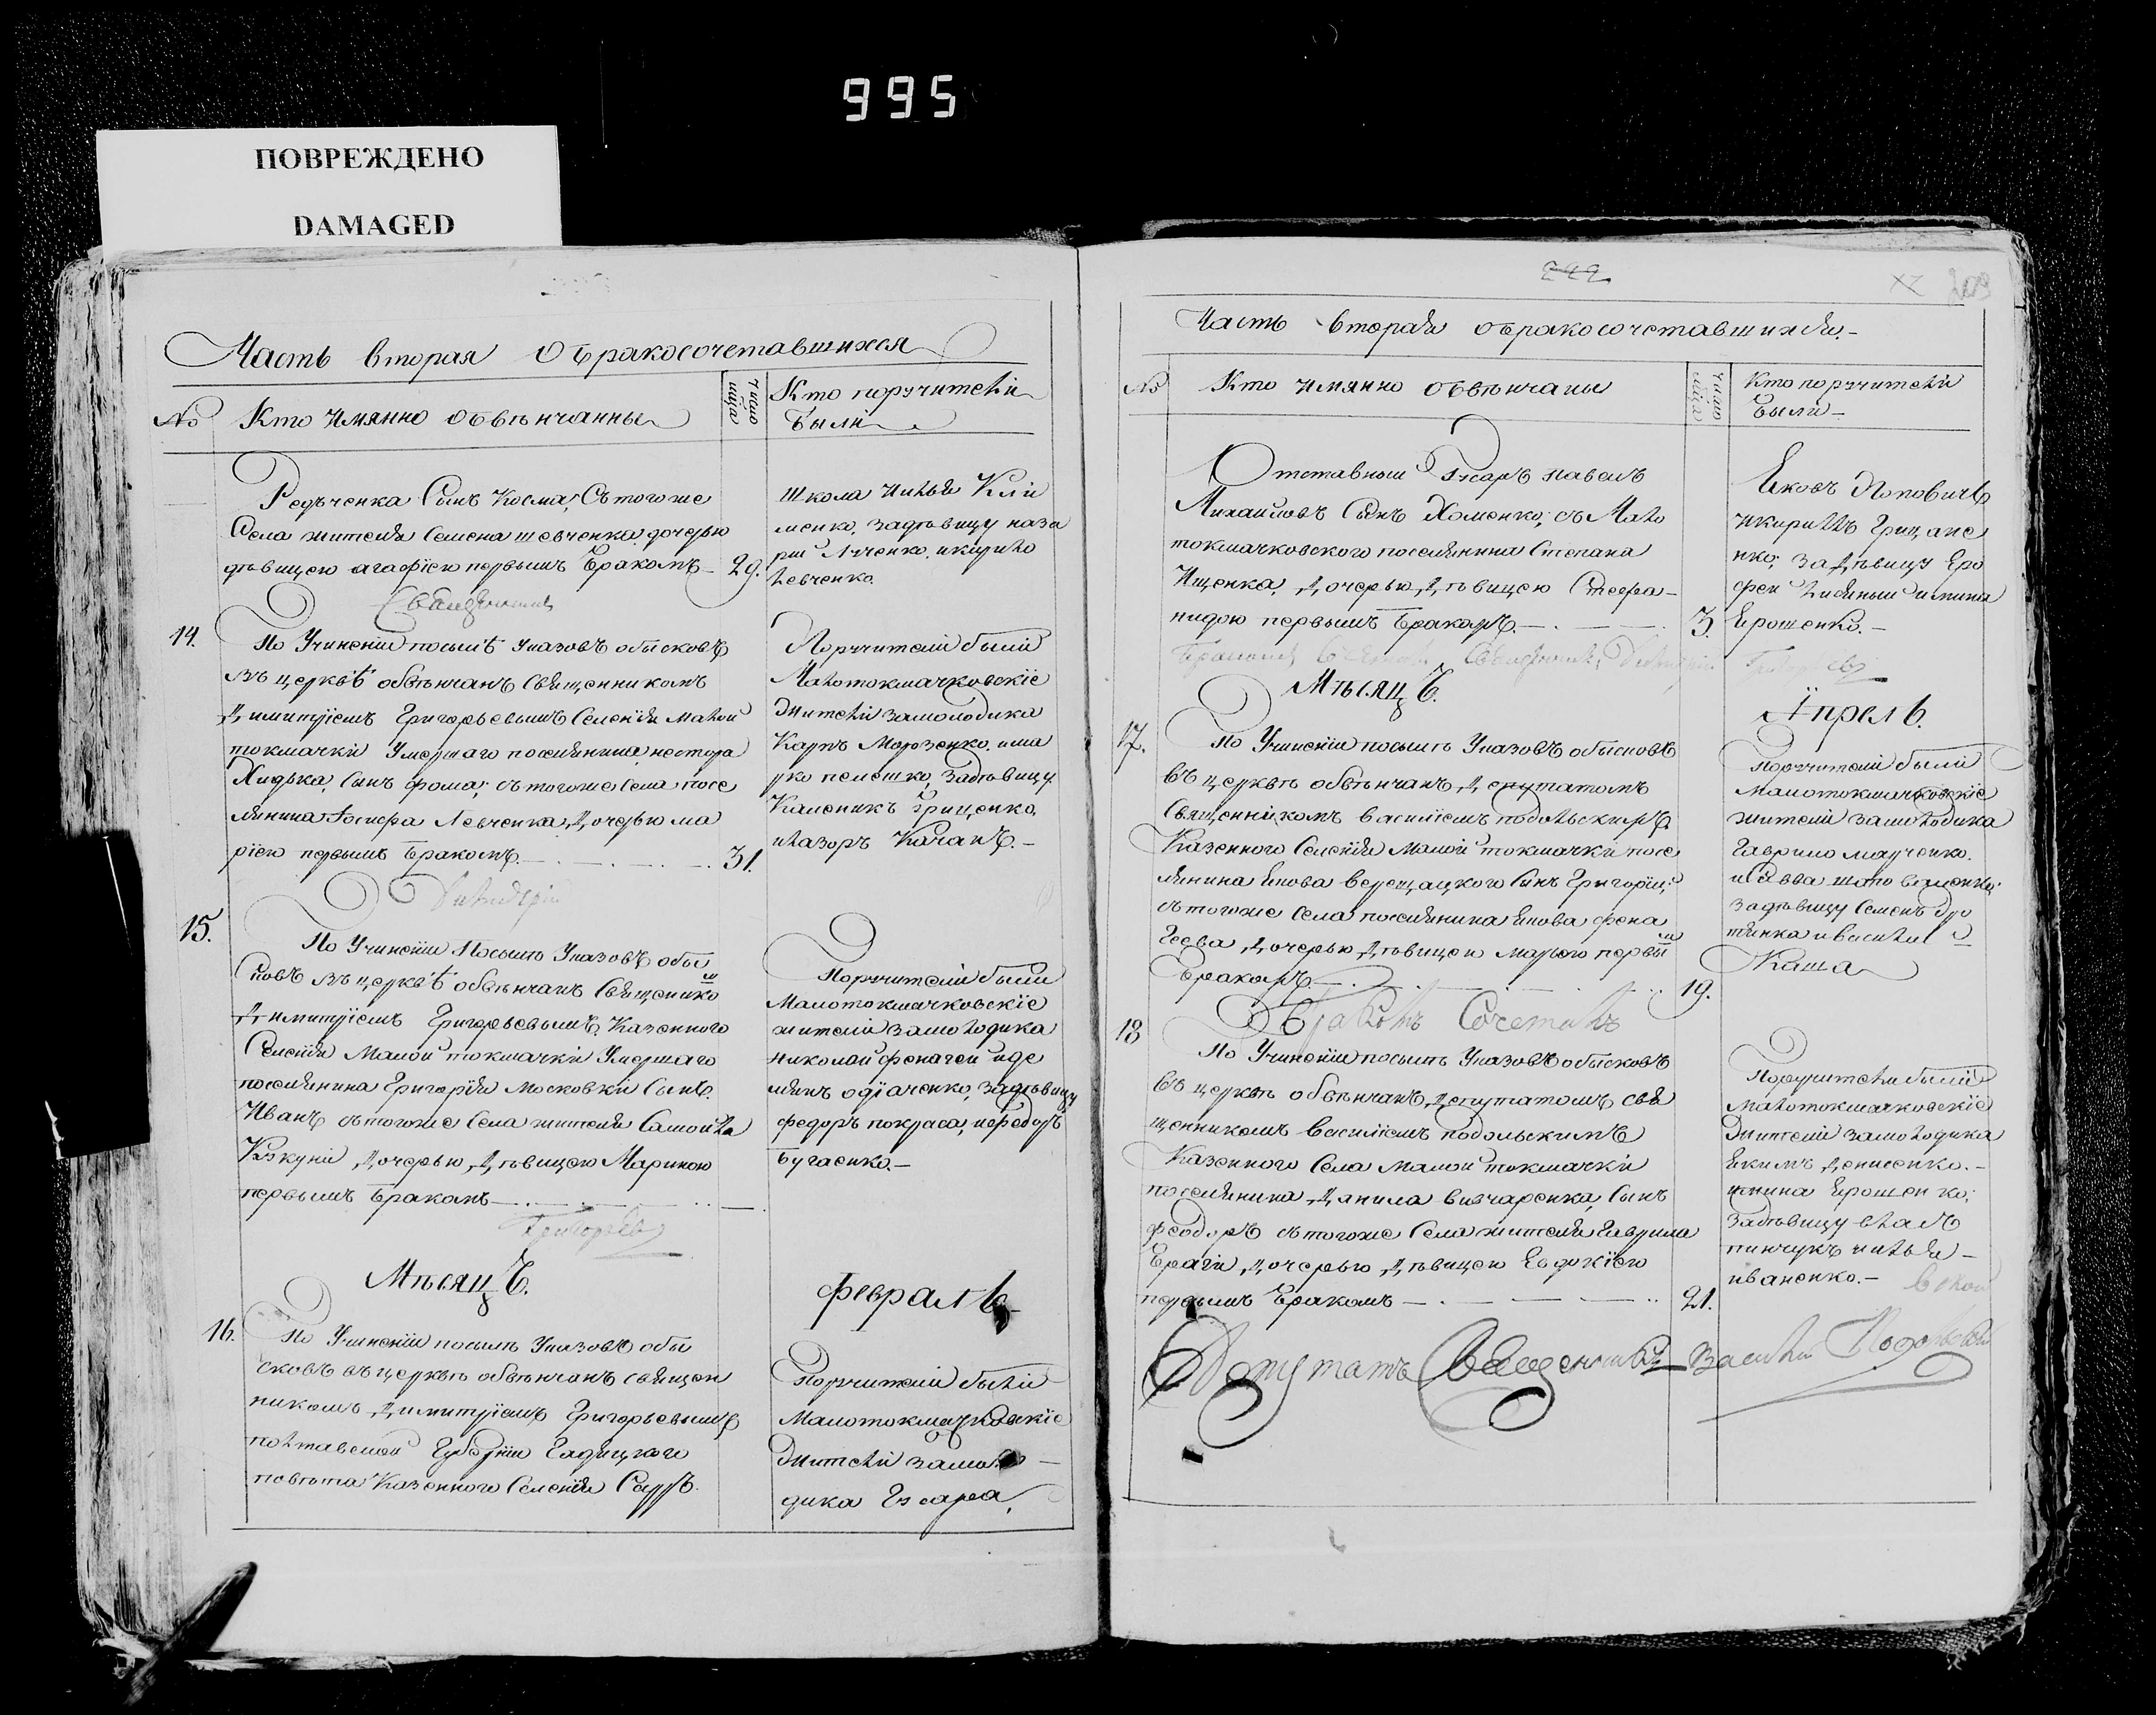 995
ПОВРЕЖДЕНО
DAMAGED
Часть вторая о бракосочетавшихся
№ Кто имянно обвѣнчанны
число мца
Кто поручители
были
Редъченка Сынъ Косма; С тогоже
Села жителя Семена шевченка дочерью
дѣвицею агафіею первымъ бракомъ 29.
Священникъ
школа Илья Кли
менко, задѣвицу наза
рій
левченко.
14.
По Учиненіи посылѣ Указовъ обысковъ
въ церквѣ обвѣнчанъ Священникомъ
Димитріемъ Григорьевымъ Селенія малой
токмачки Умершаго поселянина нестора
Хидька, Сынъ фома; с тогоже Села посе
лянина Левченка, дочерью ма
рією первымъ бракомъ 31.
Димитрій
Поручители были
Малотокмачковскіе
жители замолодика
Карпъ Морозенко. има
рко пелешко, задѣвицу
Каленикъ Гриценко,
илазоръ Качанъ.
15.
По Учиненіи Посылѣ Указовъ обы
сковъ въ церквѣ обвѣнчанъ Священико
м
Димитріемъ Григорьевымъ, Казенного
Селенія Малой токмачки Умершаго
поселянина Григорія Московки Сынъ.
Иванъ с тогоже Села жителя Самойла
дочерью, дѣвицею Мариною
первымъ бракомъ
Григорьевъ
Поручители были
Малотокмачковскіе
жители замолодика
николай феначей иде
мянъ одіяченко, задѣвицу
федоръ покраса, ифедоръ
бугаенко.
Мѣсяцъ. февраль
16.
По Учиненіи посылѣ Указовъ обы
сковъ въ церквѣ обвѣнчанъ священ
никомъ Димитріемъ Григорьевымъ
полтавской Губерніи Гадицкого
повѣта Казенного Селенія Саръ
Поручители были
Малотокмачковскіе
жители замоло
дика
222
209
Часть вторая о бракосочетавшихся.
№ Кто имянно обвѣнчаны
число мца
Кто поручители
были
Отставный Гусаръ павелъ
Михаиловъ Сынъ Хоменко; с Мало
токмачковского поселянина Степана
Ищенка, дочерью, дѣвицею Стефа-
нидою первымъ бракомъ. 3.
Яковъ Поповичъ
икирилъ Грицане
нко; задѣвицу Еро
фей
Ерошенко.
Бракомъ Священникъ Димитрій Григорьевъ
Мѣсяцъ. Апрель.
17.
По Учиненіи посылѣ Указовъ обысковъ
въ церквѣ обвѣнчанъ, депутатомъ
Священникомъ василіемъ подольскимъ
Казенного Селенія Малой токмачки посе
лянина Якова верещацкого Сынъ Григорій;
с тогоже Села поселянина Якова фена
Геева, дочерью дѣвицею марією первы
м
бракомъ. 19.
Поручители были
Малотокмачковскіе
жители замолодика
Гаврило марченко.
исавва
задѣвицу Семенъ
ивасилій
Каша
Бракомъ Сочеталъ
18
По Учиненіи посылѣ Указовъ обысковъ
въ церквѣ обвѣнчанъ, депутатомъ свя
щенникомъ василіемъ подольскимъ
Казенного Села малой токмачки
поселянина, Данила вивчаренка, Сынъ
феодоръ с тогоже Села жителя Гаврила
дочерью дѣвицею Евдокією
первымъ бракомъ 21.
Поручители были
Малотокмачковскіе
жители замолодика
Якимъ Денисенко.
Ерошенко;
задѣвицу власъ
пинчукъ иилья
иваненко.
Депутатъ Священникъ Василій Подольскій